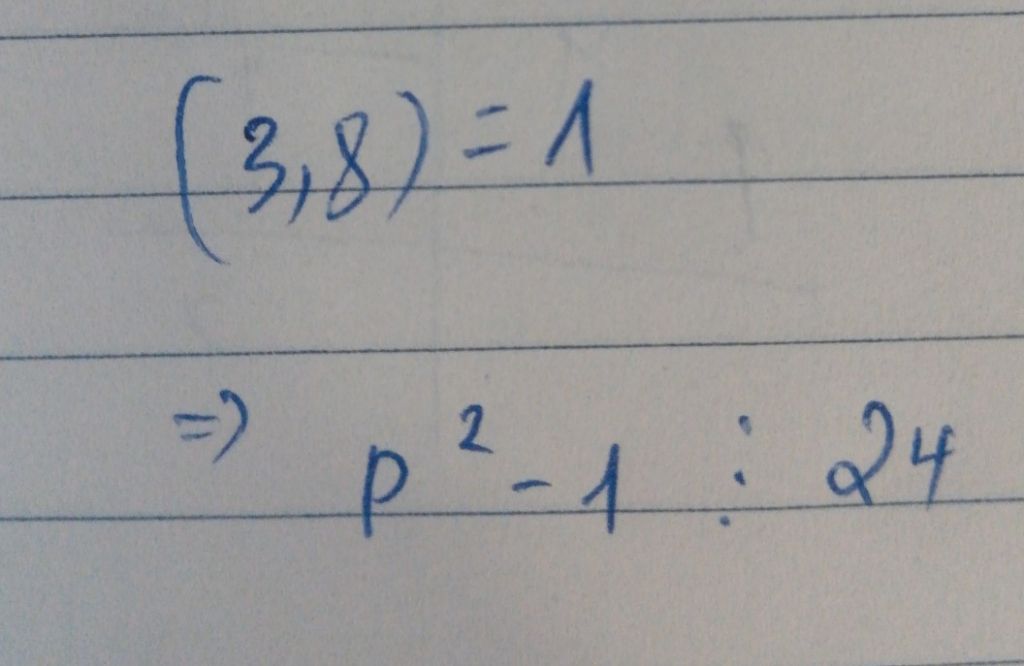 (3,8) = 1
=> p² - 1 ⋮ 24